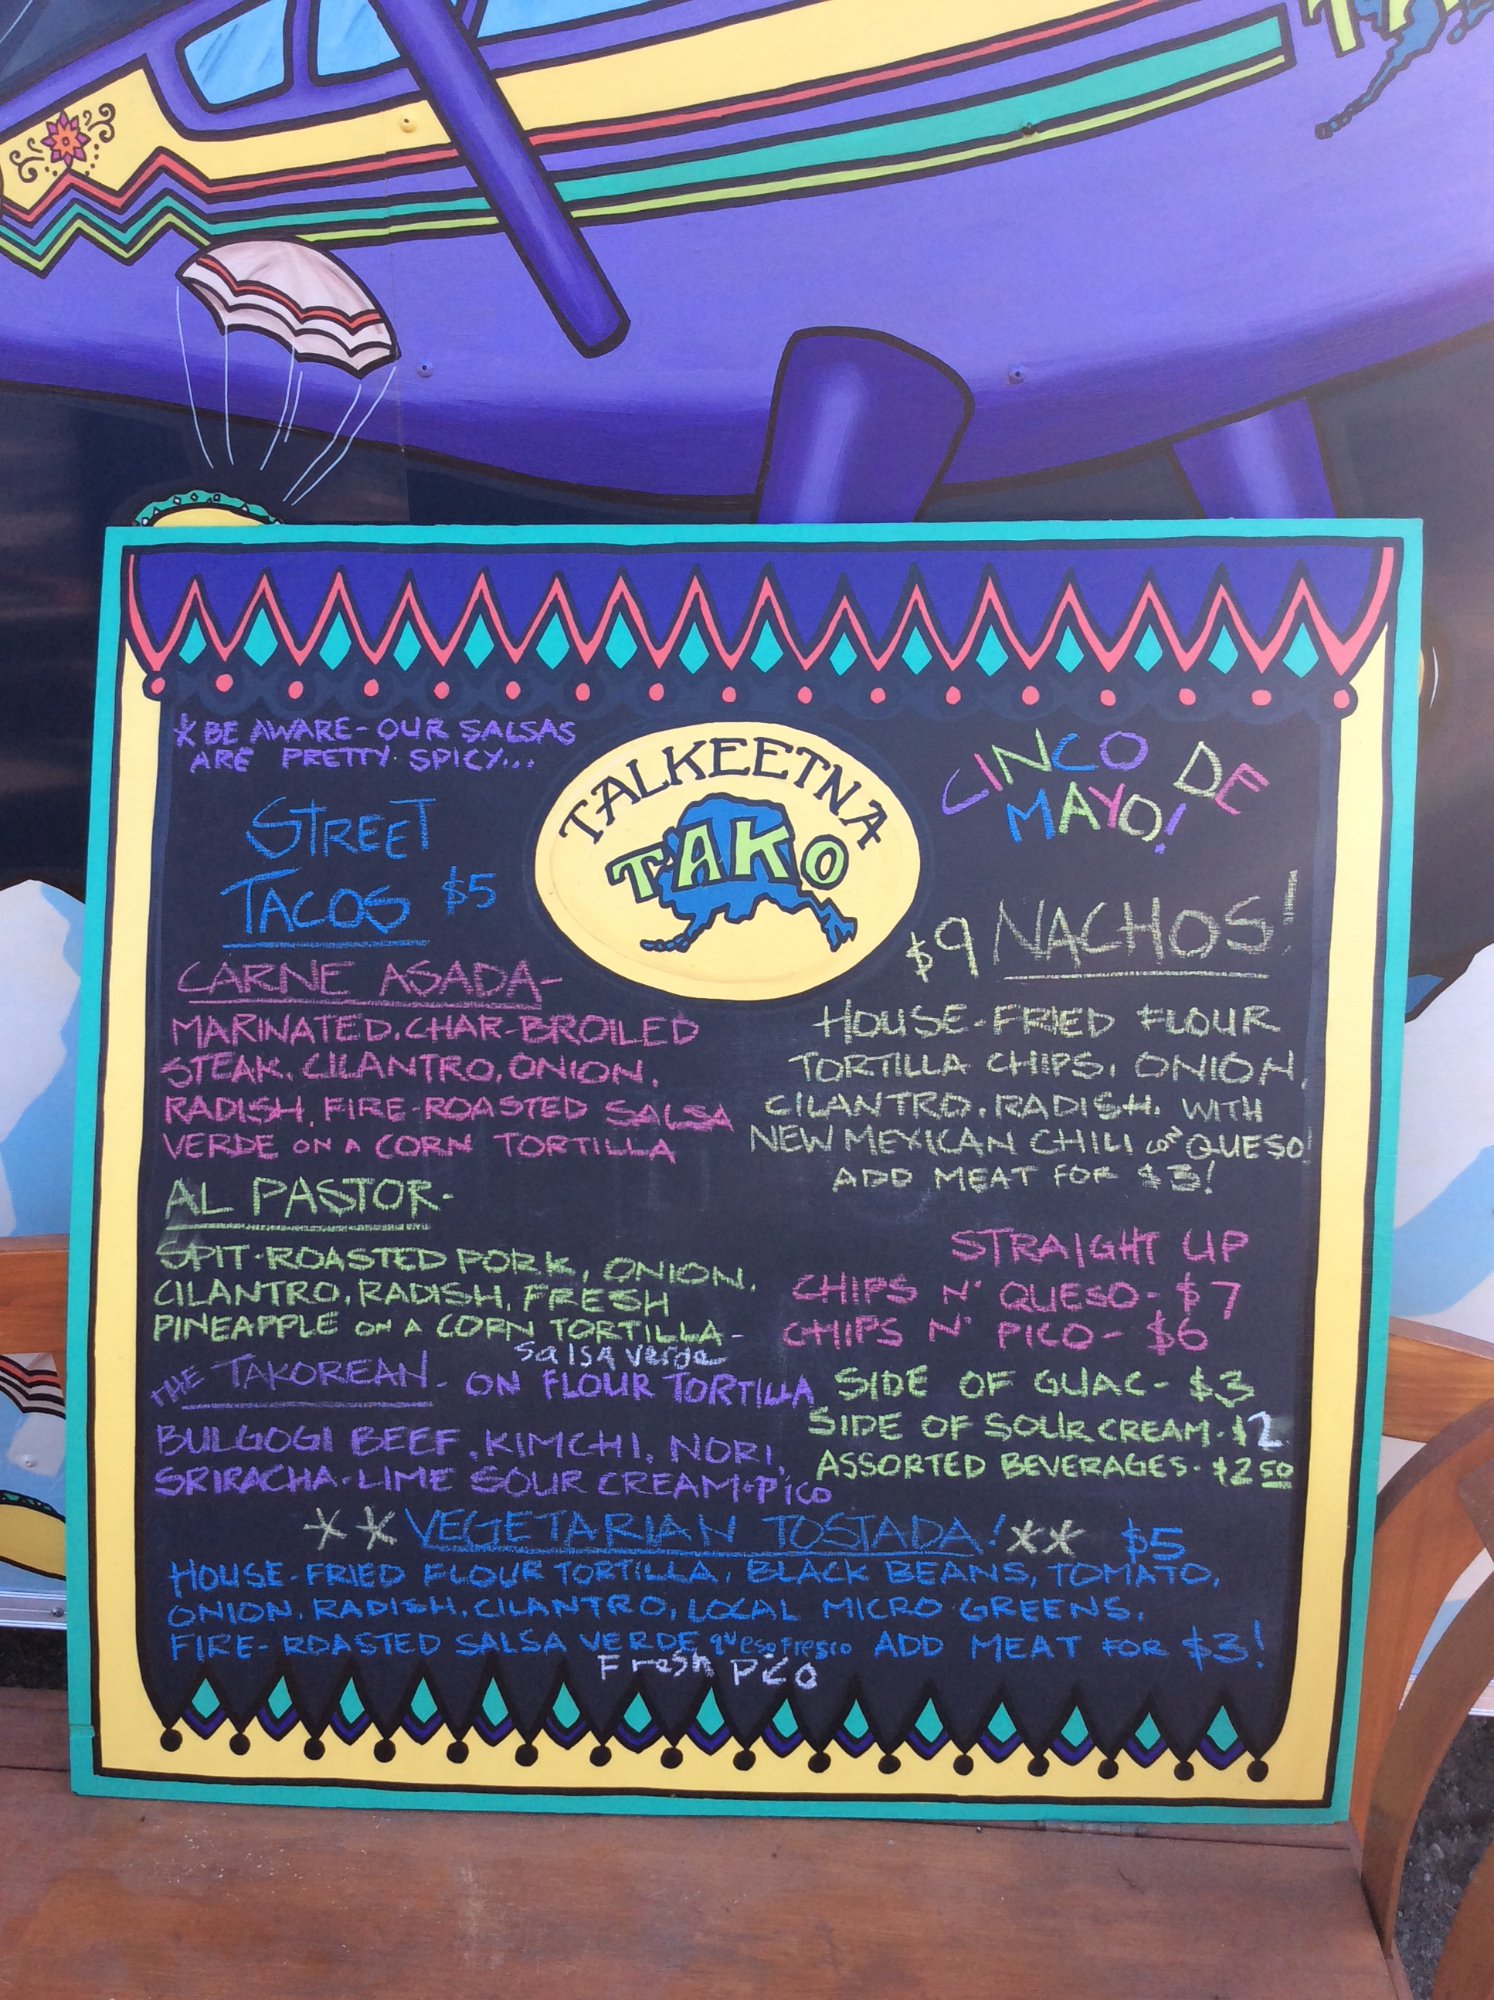 *BE AWARE-OUR SALSAS
ARE PRETTY SPICY...
TALKEETNA
TAKO
CINCO DE
MAYO!
STREET
TACOS $5
CARNE ASADA-
MARINATED, CHAR-BROILED
STEAK, CILANTRO, ONION,
RADISH, FIRE-ROASTED SALSA
VERDE ON A CORN TORTILLA
AL PASTOR-
SPIT-ROASTED PORK, ONION,
CILANTRO, RADISH, FRESH
PINEAPPLE ON A CORN TORTILLA-
Salsa verde
THE TAKOREAN- ON FLOUR TORTILLA
BULGOGI BEEF, KIMCHI, NORI,
SRIRACHA-LIME SOUR CREAM + PICO
$9 NACHOS!
HOUSE-FRIED FLOUR
TORTILLA CHIPS, ONION,
CILANTRO, RADISH, WITH
NEW MEXICAN CHILI CON QUESO!
ADD MEAT FOR $3!
STRAIGHT UP
CHIPS N' QUESO- $7
CHIPS N' PICO- $6
SIDE OF GUAC- $3
SIDE OF SOUR CREAM- $2
ASSORTED BEVERAGES- $2 50
**VEGETARIAN TOSTADA!** $5
HOUSE-FRIED FLOUR TORTILLA, BLACK BEANS, TOMATO,
ONION, RADISH, CILANTRO, LOCAL MICRO GREENS,
FIRE-ROASTED SALSA VERDE queso fresco ADD MEAT FOR $3!
Fresh pico